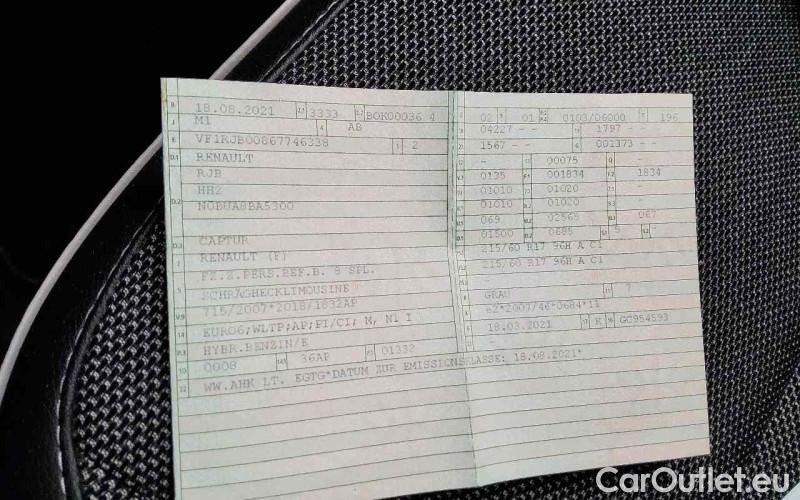 B 18.08.2021 2.1 3333 2.2 BOK00036 4
J M1 4 AB
E VF1RJB00867746338 3 2
D.1 RENAULT
RJB
D.2 HH2
N0BUA8BA5300
D.3 CAPTUR
2 RENAULT (F)
FZ.Z.PERS.BEF.B. 8 SPL.
5 SCHRÄGHECKLIMOUSINE
V.9 715/2007*2018/1832AP
14 EURO6;WLTP;AP;PI/CI; M, N1 I
P.3 HYBR.BENZIN/E
10 0008 14.1 36AP P.1 01332
22 WW.AHK LT. EGTG*DATUM ZUR EMISSIONSKLASSE: 18.08.2021*
02 9 01 0103/06000 T 196
18 04227 - - 19 1797 - -
1567 - - G 001373 - -
12 - 13 00075 Q -
V.7 0135 F.1 001834 F.2 1834
01010 01020 -
01010 01020 -
U.1 069 02565 U.3 067
O.1 01500 O.2 0685 S.1 5 S.2 -
215/60 R17 96H A C1
215/60 R17 96H A C1
R GRAU 11 7
K e2*2007/46*0684*11
6 18.03.2021 17 K 16 GC954593
CarOutlet.eu